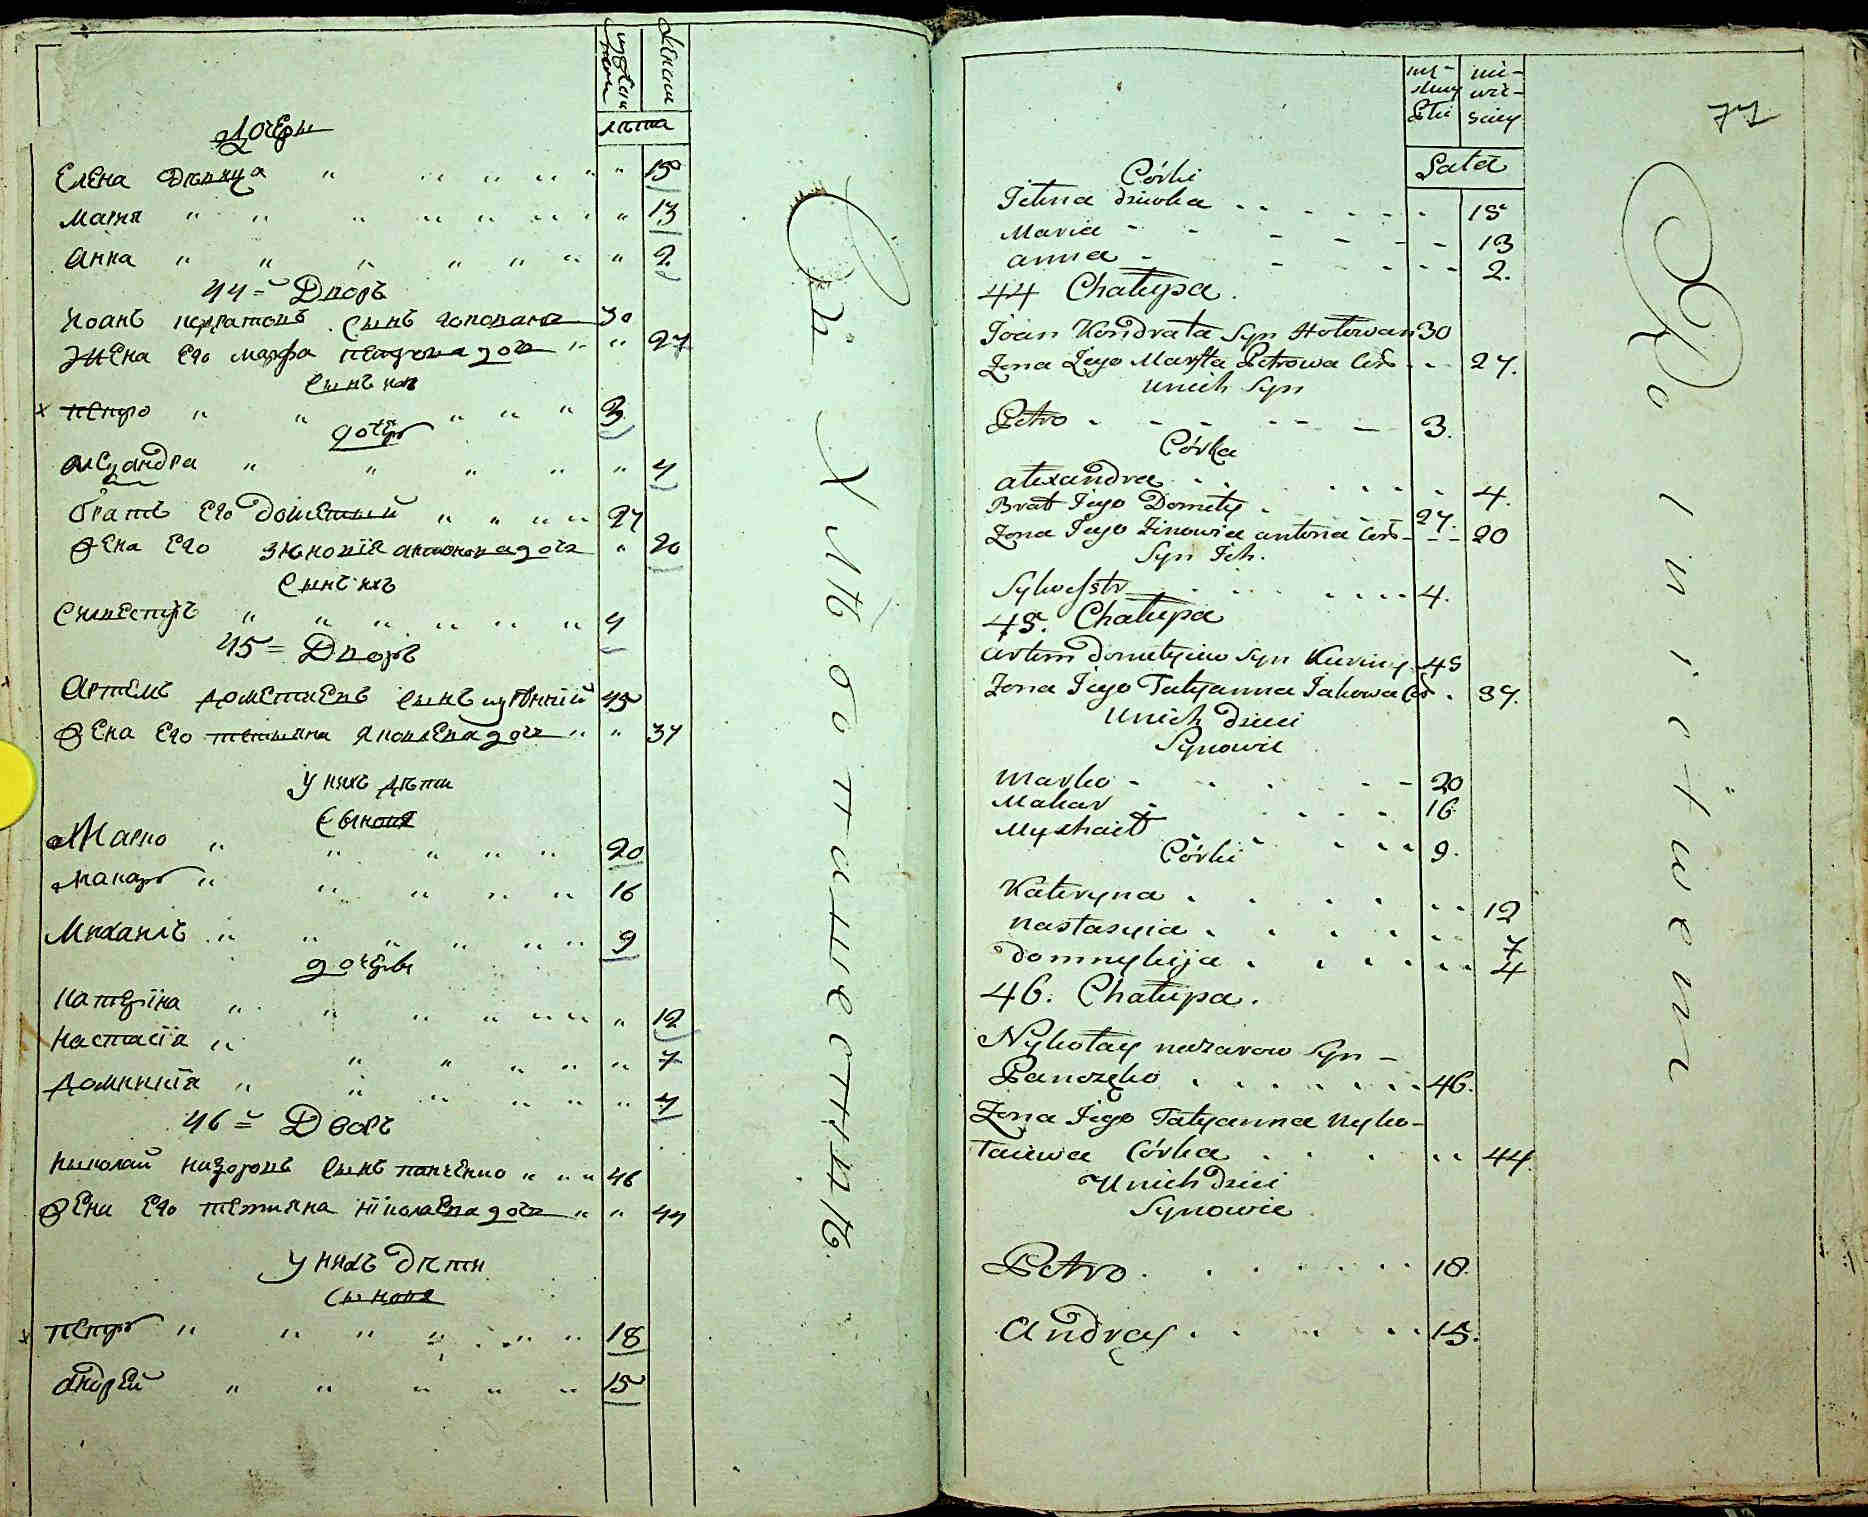 мужеска
женска
лѣта
Дочеры
Елена Дѣвица " " " " " " " 15
Мария " " " " " " " " 13
Анна " " " " " " " 2
44 = Дворъ
Иоанъ Кондратовъ Сынъ Голованъ 30
Жена его Марфа Петрова дочь " " 27
Сынъ ихъ
Петро " " " " " 3
дочерь
Алеѯандра " " " " " 4
братъ его Дометый " " " " 27
Жена его Зѣновія Антонова дочь " 20
Сынъ ихъ
Силвестръ " " " " " " 4
45 = Дворъ
Артемъ Дометиевъ Сынъ 45
Жена его Татияна Яковлева дочь " " 37
У нихъ дѣти
Сыновя
Марко " " " " " 20
Макаръ " " " " " 16
Михаилъ " " " " " " 9
дочеры
Катерина " " " " " " " " 12
Настасія " " " " " " " 7
Домникія " " " " " " " 4
46 = Дворъ
Николай Назаровъ Сынъ Панченко " " " 46
Жена его Татияна Николаева дочь " " 44
У нихъ Дѣти
Сыновя
Петръ " " " " " " 18
Андрей " " " " " 15
Съ Хмѣ
77
Lata
Córki
Jelena dziwka - - - - - - 15
Maria - - - - - - 13
anna - - - - - - 2.
44 Chałupa.
Joan Kondrata Syn Hołowan 30
Zona Jego Marfta Petrowa Cór - - 27.
unich Syn
Petro - - - - - - 3.
Córka
alexandra - - - - - - 4.
Brat Jego Domety - - - 27.
Zona Jego Zinowia antona Cór - - - 20
Syn Ich.
Sylwestr - - - - - - 4.
45. Chałupa
artem Dometyiew Syn 45
Zona Jego Tatyanna Jakowa Cór . 37.
Unich Dzieci
Synowie
Marko - - - - - - 20
Makar - - - - - 16
Mychaił - - - - - 9.
Córki
Kateryna . . . . . . 12
nastasyia . . . . . . 7
domnykija . . . . . . 4
46. Chałupa.
Nykołay nazarow Syn -
Panczęko . . . . . . . 46.
Zona Jego Tatyanna Nyko-
łaiewa Córka . . . . . 44.
Unich Dzieci
Synowie
Petro . . . . . . . 18.
Andrey . . . . . . 15.